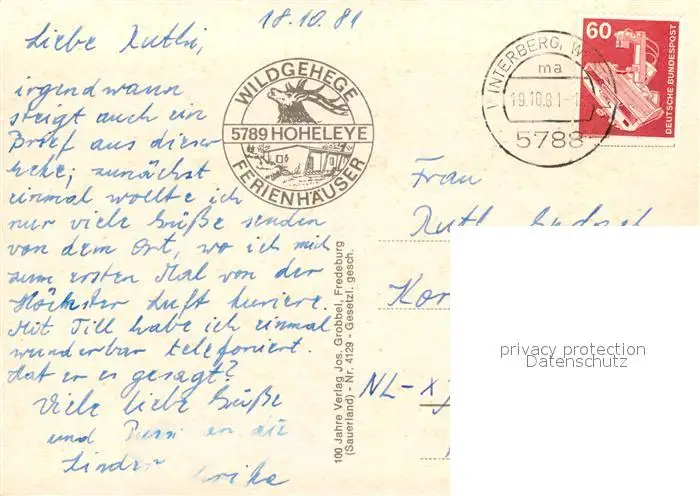 18.10.81
Liebe Ruthi,
irgendwann
steigt auch ein
Brief aus dieser
Ecke; zunächst
einmal wollte ich
nur viele Grüße senden
von dem Ort, wo ich mich
zum ersten Mal von der
Höchster Luft kuriere.
Mit Till habe ich einmal
wunderbar telefoniert.
Hat er es gesagt?
Viele liebe Grüße
und Bussi an die
Kinder
WILDGEHEGE
5789 HOHELEYE
FERIENHÄUSER
100 Jahre Verlag Jos. Grobbel, Fredeburg
(Sauerland) - Nr. 4129 - Gesetzl. gesch.
WINTERBERG, W
ma
19.10.81-1
5788
60
DEUTSCHE BUNDESPOST
Frau
Ruth
Kor
NL-
privacy protection
Datenschutz